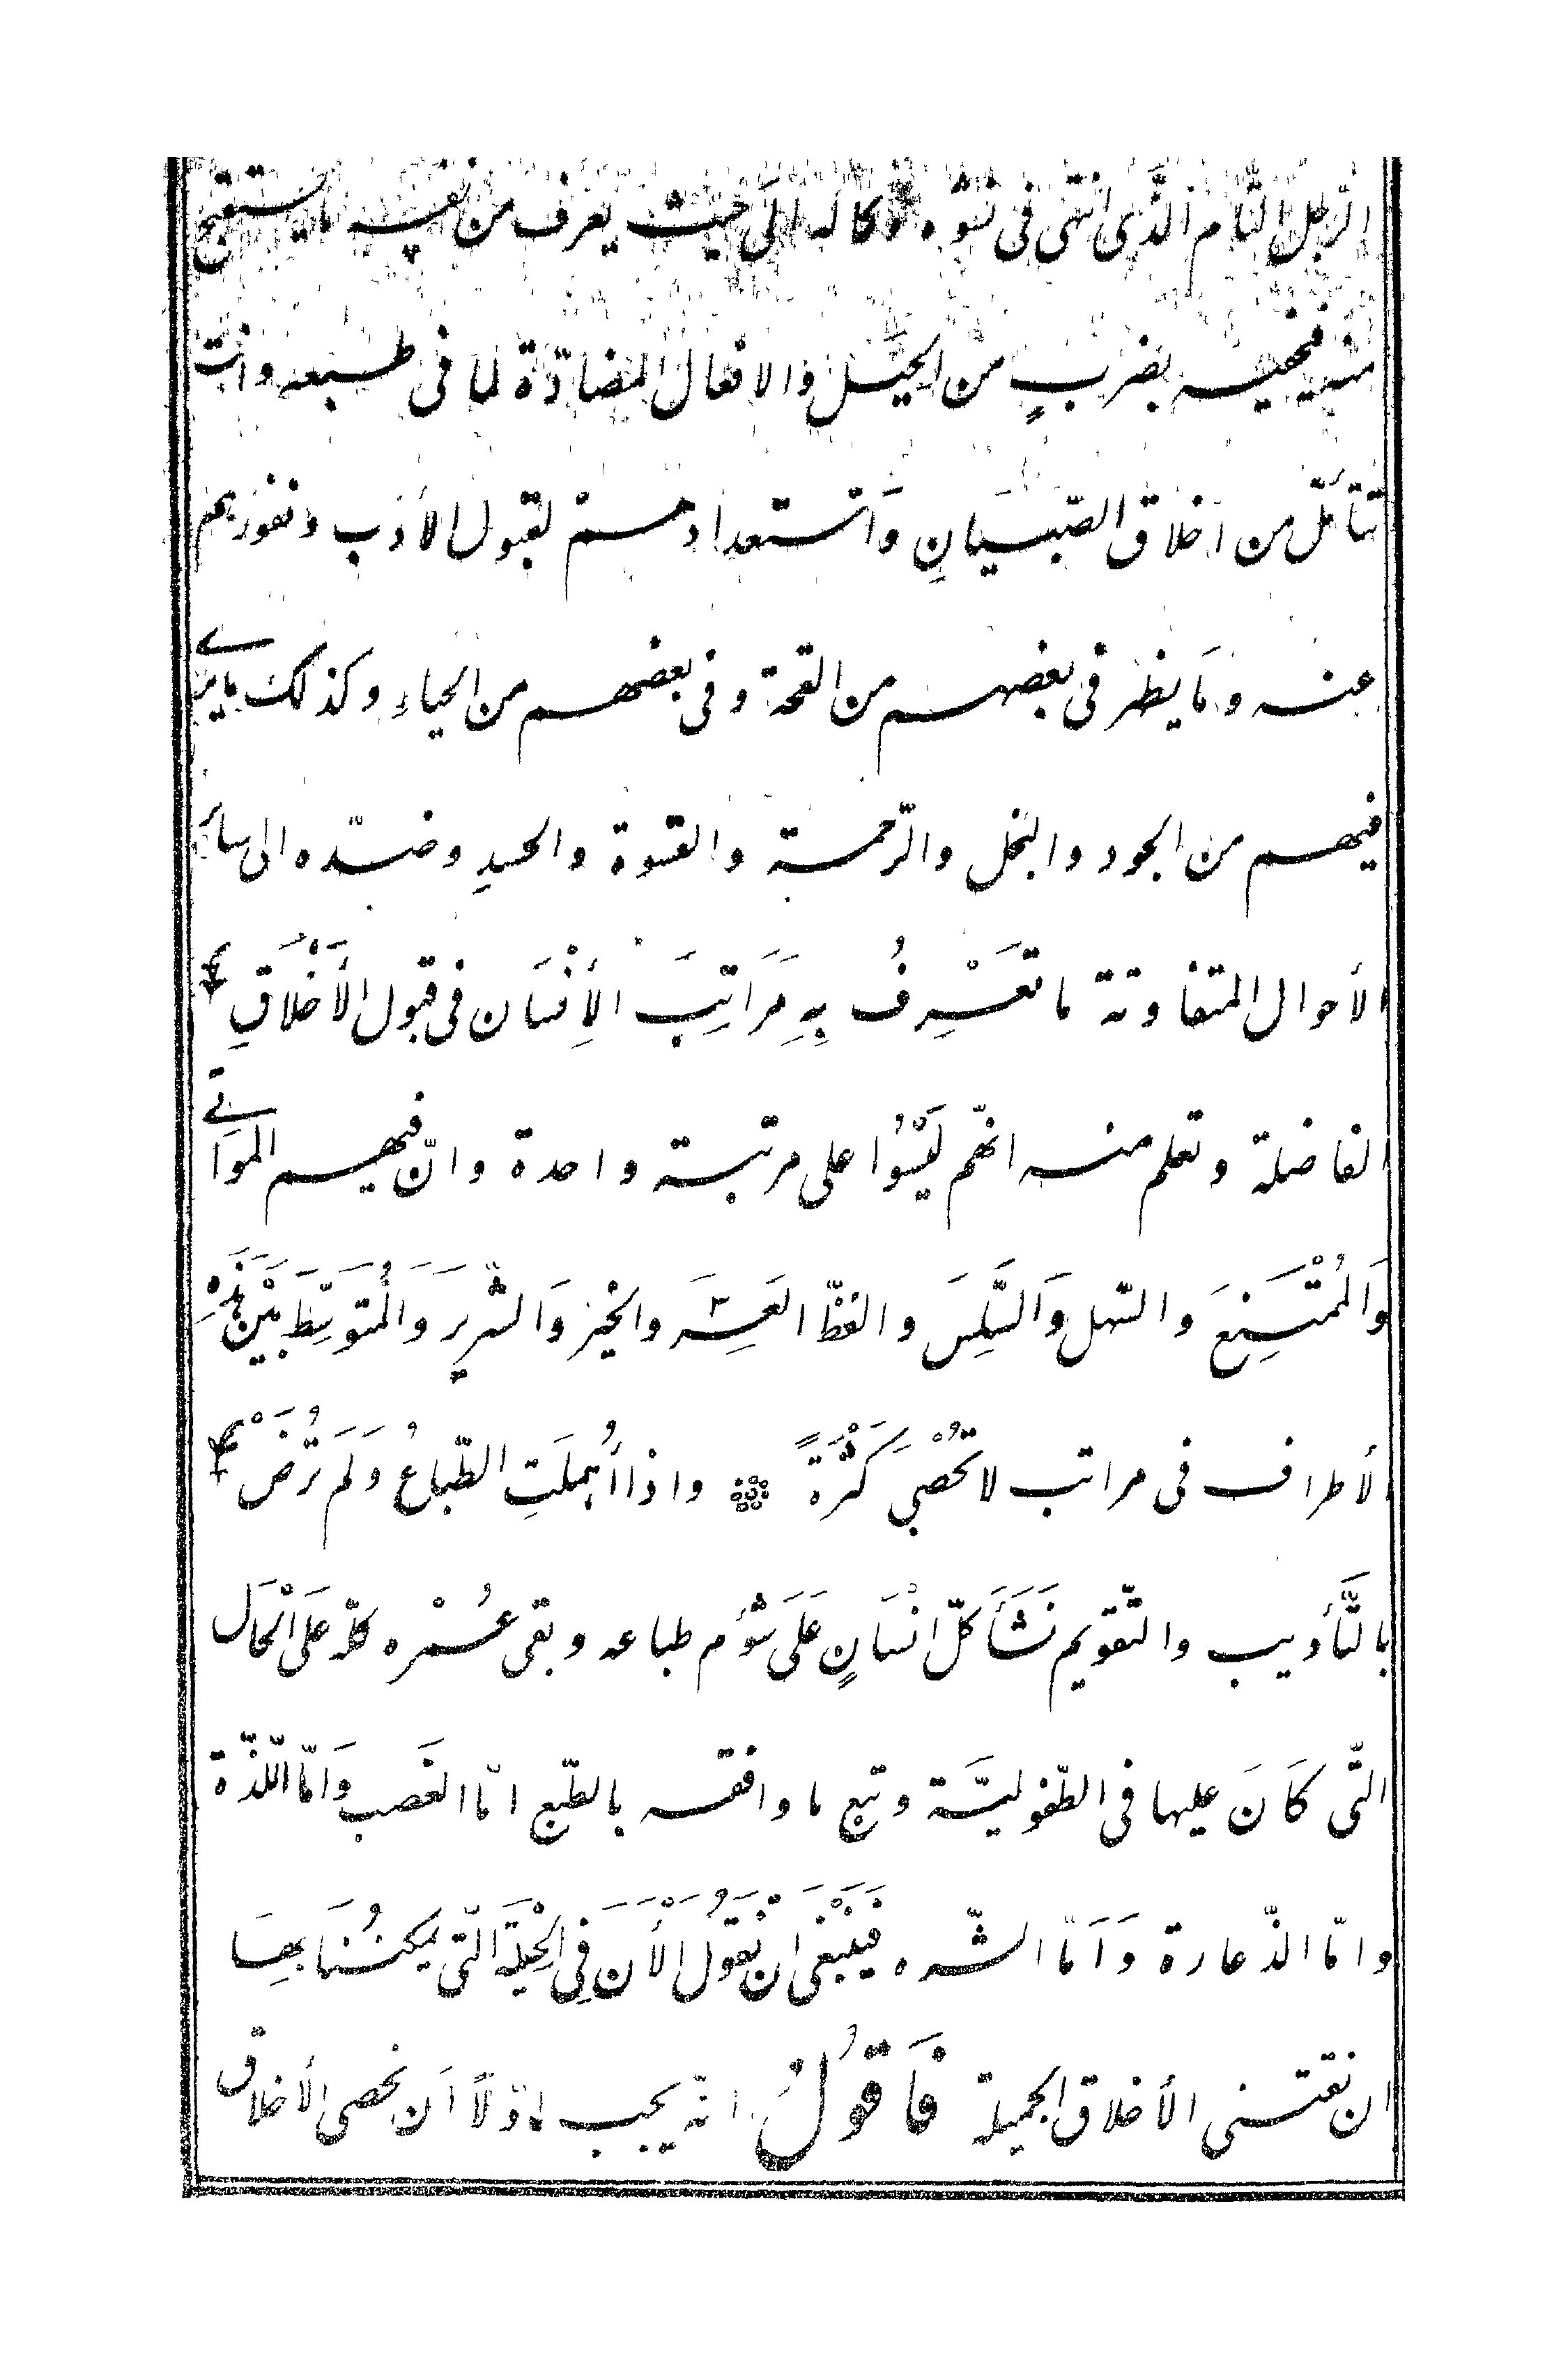 الرّجل التّام الّذى انتهى فى نشوه وكماله الَى حيث يعرف من نفسه ما يستقبح
منه فيخفيه بضربٍ من الحيل والافعال المضادّة لما فى طبعه وانت
تتأمّل من اخلاق الصّبيَانِ وَاستعدادهم لقبول الأدب ونفورهم
عنه ومَا يظهر فى بعضهم من القحة وفى بعضهم من الحياءِ وكذلك ما يرى
فيهم من الجود والبخل والرّحمة والقسوة والحسدِ وضدّه الى سائر
الأحوال المتفاوتة ما تعَْرِفُ بِهِ مَرَاتِبَ الأِنْسَان فى قبول الأَخْلَاقِ
الفاضلة وتعلم منه انّهم لَيْسُوا على مرتبة واحدة وانّ فيهم المواتى
وَالمُمْتَنِعَ والسّهل وَالسَّلِسَ والفظّ العَسِرَ والخيّر وَالشّرِيرَ وَالْمُتَوَسِّطَ بَيْنَ هَذِهِ
الأطراف فى مراتب لا تُحْصَى كَثْرَةً واذا أُهمِلَتِ الطّباعُ وَلَم تُرَضْ
بالتَّأديب والتّقويم نَشَأَ كلّ انْسَانٍ عَلَى سُؤم طباعه وبقى عُمْره كلّه عَلَى الْحَال
التّى كَانَ عليها فى الطّفوليَّة وتبع ما وافقه بالطّبع امّا الغَضب وَامّا اللّذّة
وامّا الذّعارة وَاَمّا الشّره فَيَنْبَغَى ان نَقُولَ الْأَنَ فِى الْحِيلَةِ الّتى يمكنُنَا بِهَا
ان نقتنى الأخلاق الجميلة فَاَقوُلُ انّه يجب اوّلاً اَن نحصى الأخلاق